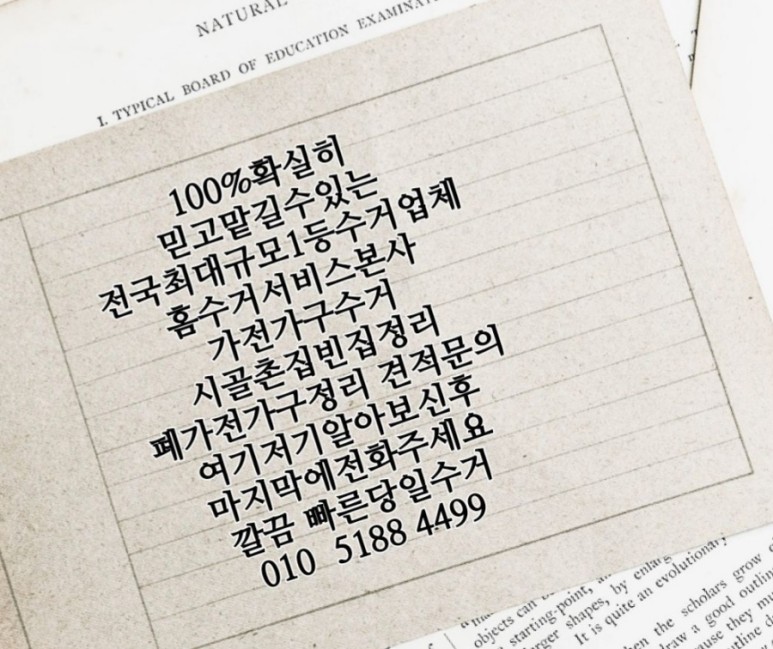 NATURAL
I. TYPICAL BOARD OF EDUCATION
100%확실히
믿고맡길수있는
전국최대규모1등수거업체
홈수거서비스본사
가전가구수거
시골촌집빈집정리
폐가전가구정리 견적문의
여기저기알아보신후
마지막에전화주세요
깔끔 빠른당일수거
010 5188 4499
objects can
starting-point,
larger shapes, by
It is quite an evolutionary
the scholars grow
draw a good
they